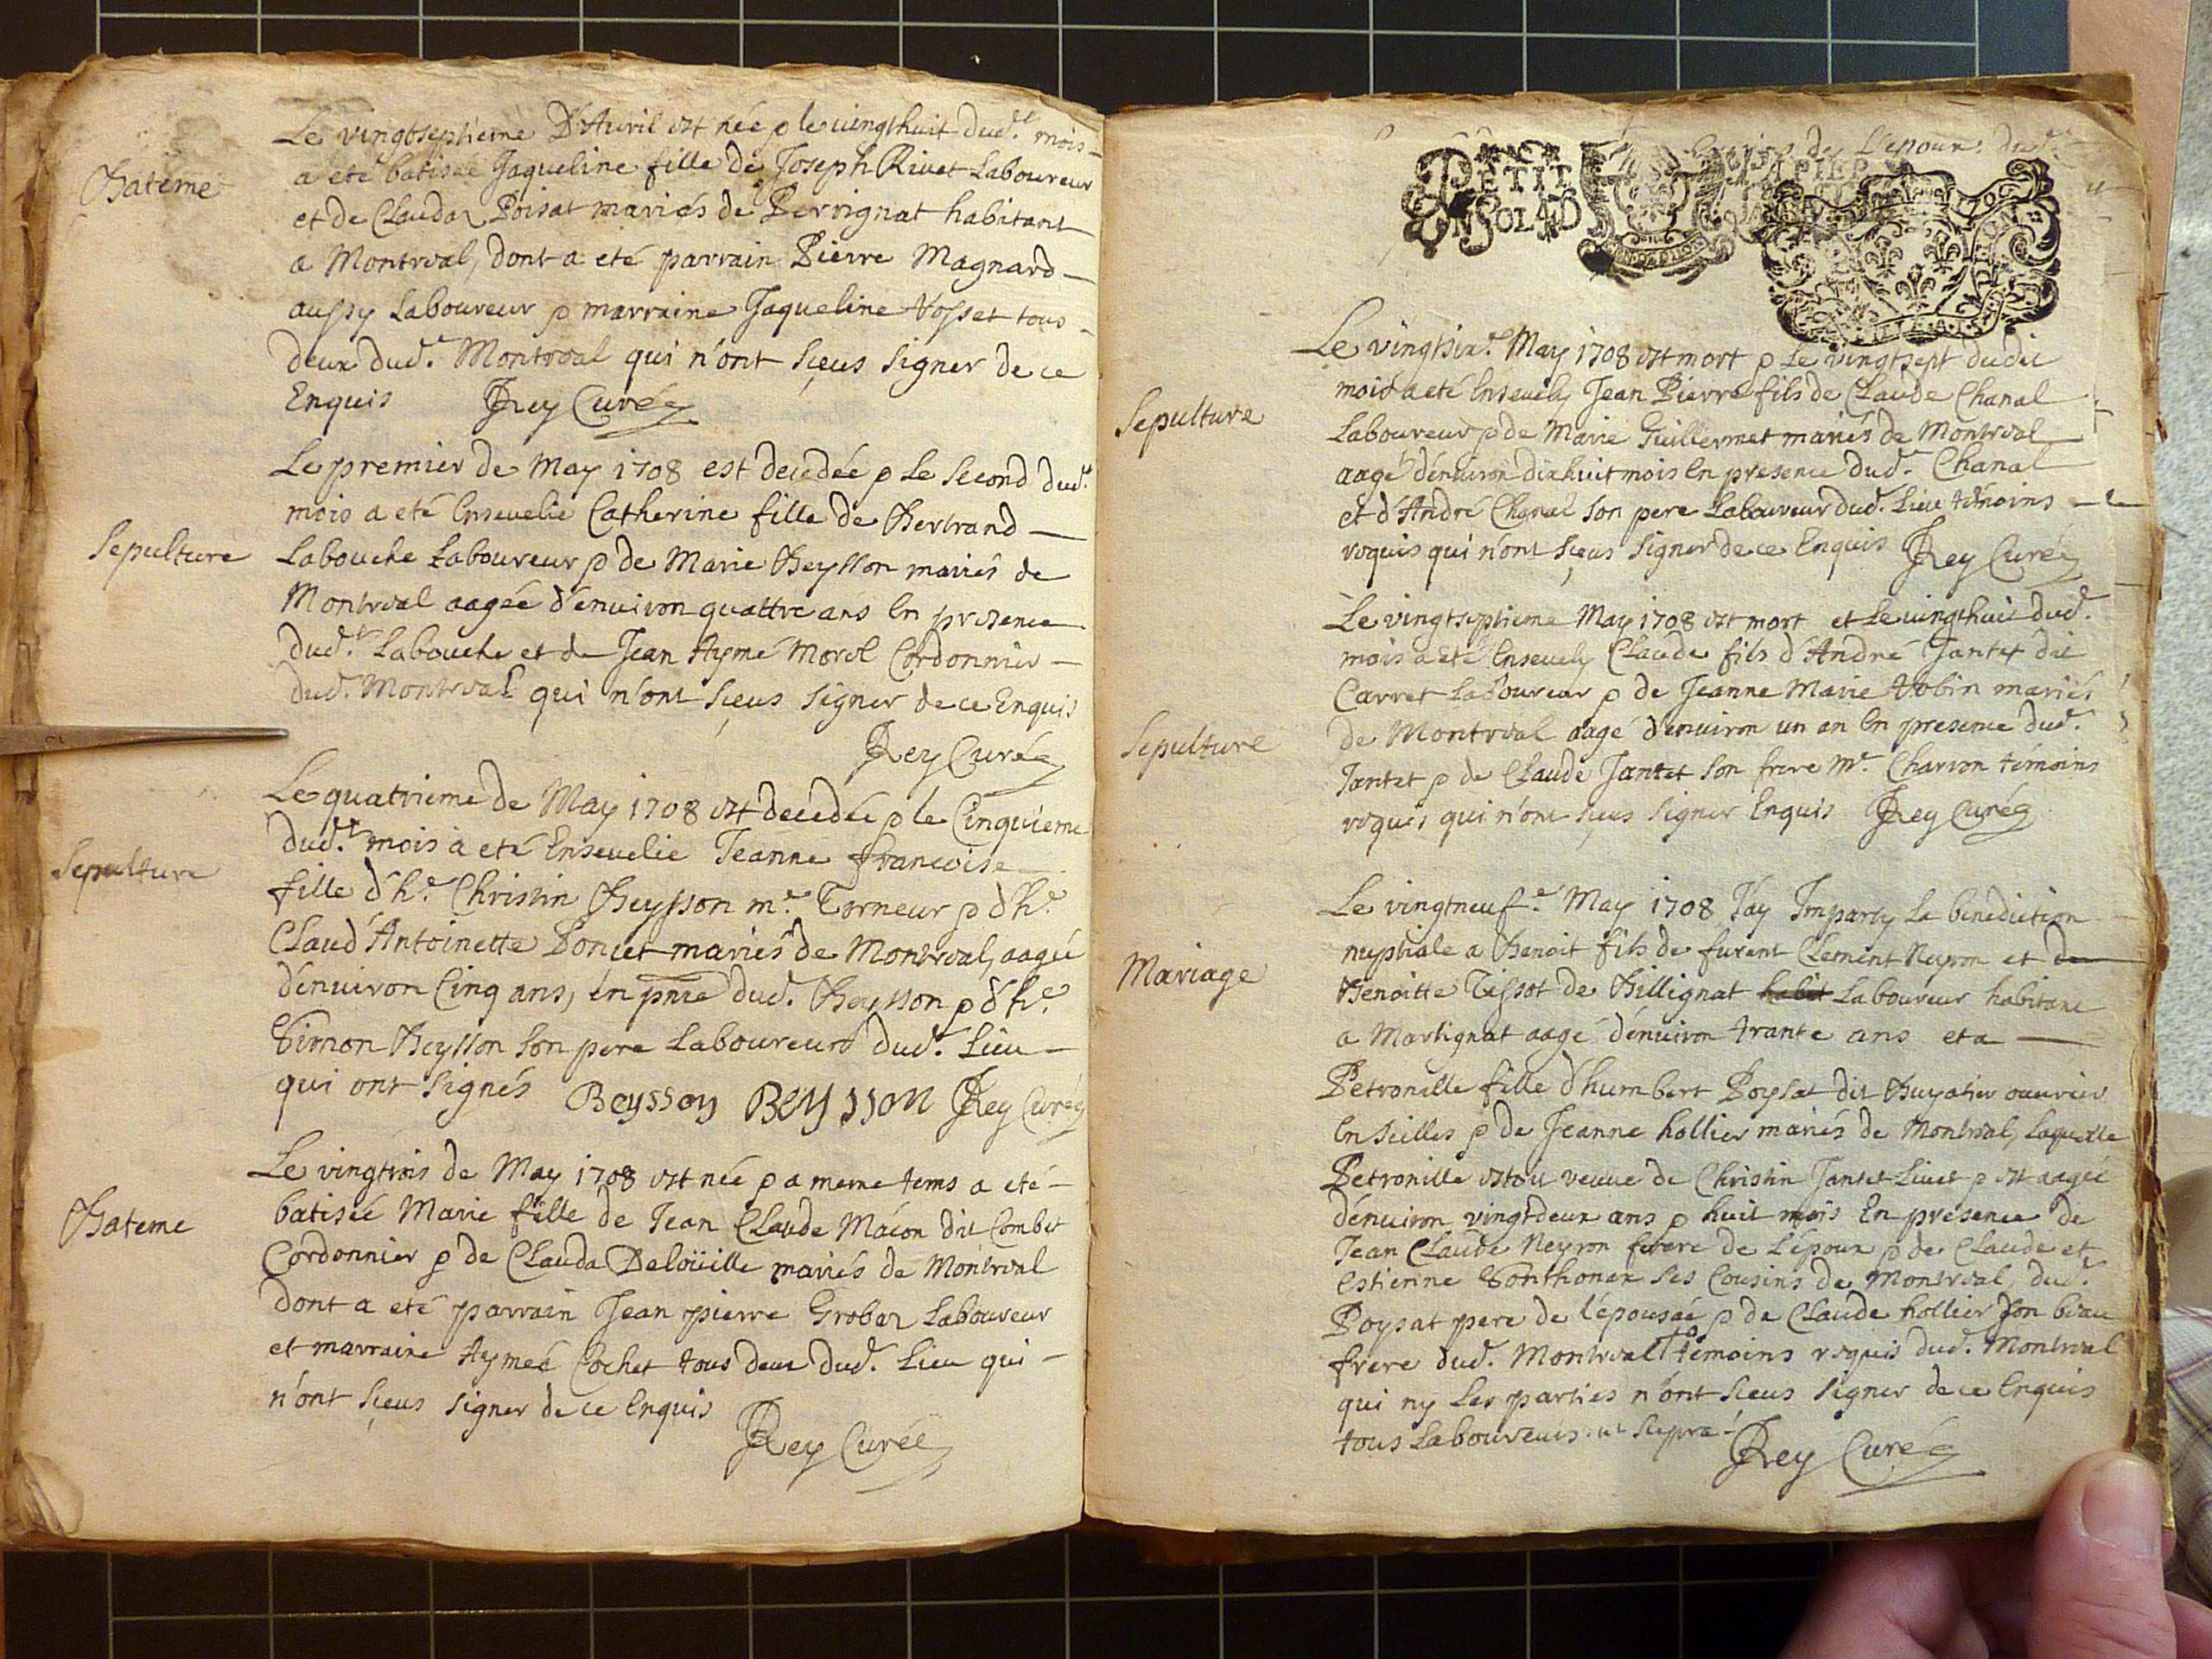 Bateme
Le vingtseptieme D'Avril est née & le vingthuit dud.t mois
a eté batisée Jaqueline fille de Joseph Rivet Laboureur
et de Clauda Poisat mariés de Pervignat habitant
a Montreal, dont a eté parrain Pierre Magnard
aussy Laboureur & marraine Jaqueline Vosset tous
deux dud.t Montreal qui n'ont sçeus signer de ce
Enquis Rey Curé
Sepulture
Le premier de May 1708 est decedée & le second dud.t
mois a eté Ensevelie Catherine fille de Bertrand
Labouche Laboureur & de Marie Beysson mariés de
Montreal aagée d'environ quattre ans En presence
dud.t Labouche et de Jean Aymé Morel Cordonnier
dud.t Montreal qui n'ont sçeus signer de ce Enquis
Rey Curé
Sepulture
Le quatrieme de May 1708 est decedée & le Cinquieme
dud.t mois a eté Ensevelie Jeanne francoise
fille d'h.e Christin Beysson m.e Torneur & d'h.e
Claud'Antoinette Poncet mariés de Montreal, aagée
d'environ Cinq ans, en pnce dud. Beysson & d'h.e
Simon Beysson son pere Laboureurs dud. Lieu
qui ont signés Beysson BEYSSON Rey Curé
Bateme
Le vingtrois de May 1708 est née & a meme tems a eté
batisée Marie fille de Jean Claude Macon dit Combet
Cordonnier & de Clauda Deloüille mariés de Montreal
dont a eté parrain Jean pierre Grobaz Laboureur
et marraine Aymeé Cochet tous deux dud. Lieu qui
n'ont sçeus signer de ce Enquis
Rey Curé
de L'epoux dud.t
PETIT PAPIER
EN SOL AD
Sepulture
Le vingtsix.e May 1708 est mort & le vingtsept dudit
mois a eté Ensevely Jean Pierre fils de Claude Chanal
Laboureur & de Marie Guillermet mariés de Montreal
aagé d'environ dixhuit mois En presence dud. Chanal
et d'André Chanal son pere Laboureur dud. Lieu témoins
requis qui n'ont sçeus signer de ce Enquis Rey Curé
Sepulture
Le vingtseptieme May 1708 est mort et le vingthuit dud.
mois a eté Ensevely Claude fils d'André Jantet dit
Carret Laboureur & de Jeanne Marie Vobin mariés
de Montreal aagé d'environ un an En presence dud.
Jantet & de Claude Jantet son frere m.e Charron témoins
requis qui n'ont sçeus signer Enquis Rey Curé
Mariage
Le vingtneuf.e May 1708 J'ay Imparty la benediction
nuptiale a Benoit fils de furent Clement Neyron et de
Benoitte Tissot de Billignat habit Laboureur habitant
a Martignat aagé d'environ trante ans et a
Petronille fille d'humbert Poysat dit Buyatier ouvrier
En seilles & de Jeanne hollier mariés de Montreal, laquelle
Petronille estoit veuve de Christin Jantet Livet & est aagée
d'environ vingtdeux ans & huit mois En presence de
Jean Claude Neyron frere de L'époux & de Claude et
Estienne Sonthonax ses Cousins de Montreal, dud.
Poysat pere de l'épousée & de Claude hollier son beau
frere dud. Montreal témoins requis dud. Montreal
qui ny les parties n'ont sçeus signer de ce Enquis
tous Laboureurs ut supra
Rey Curé